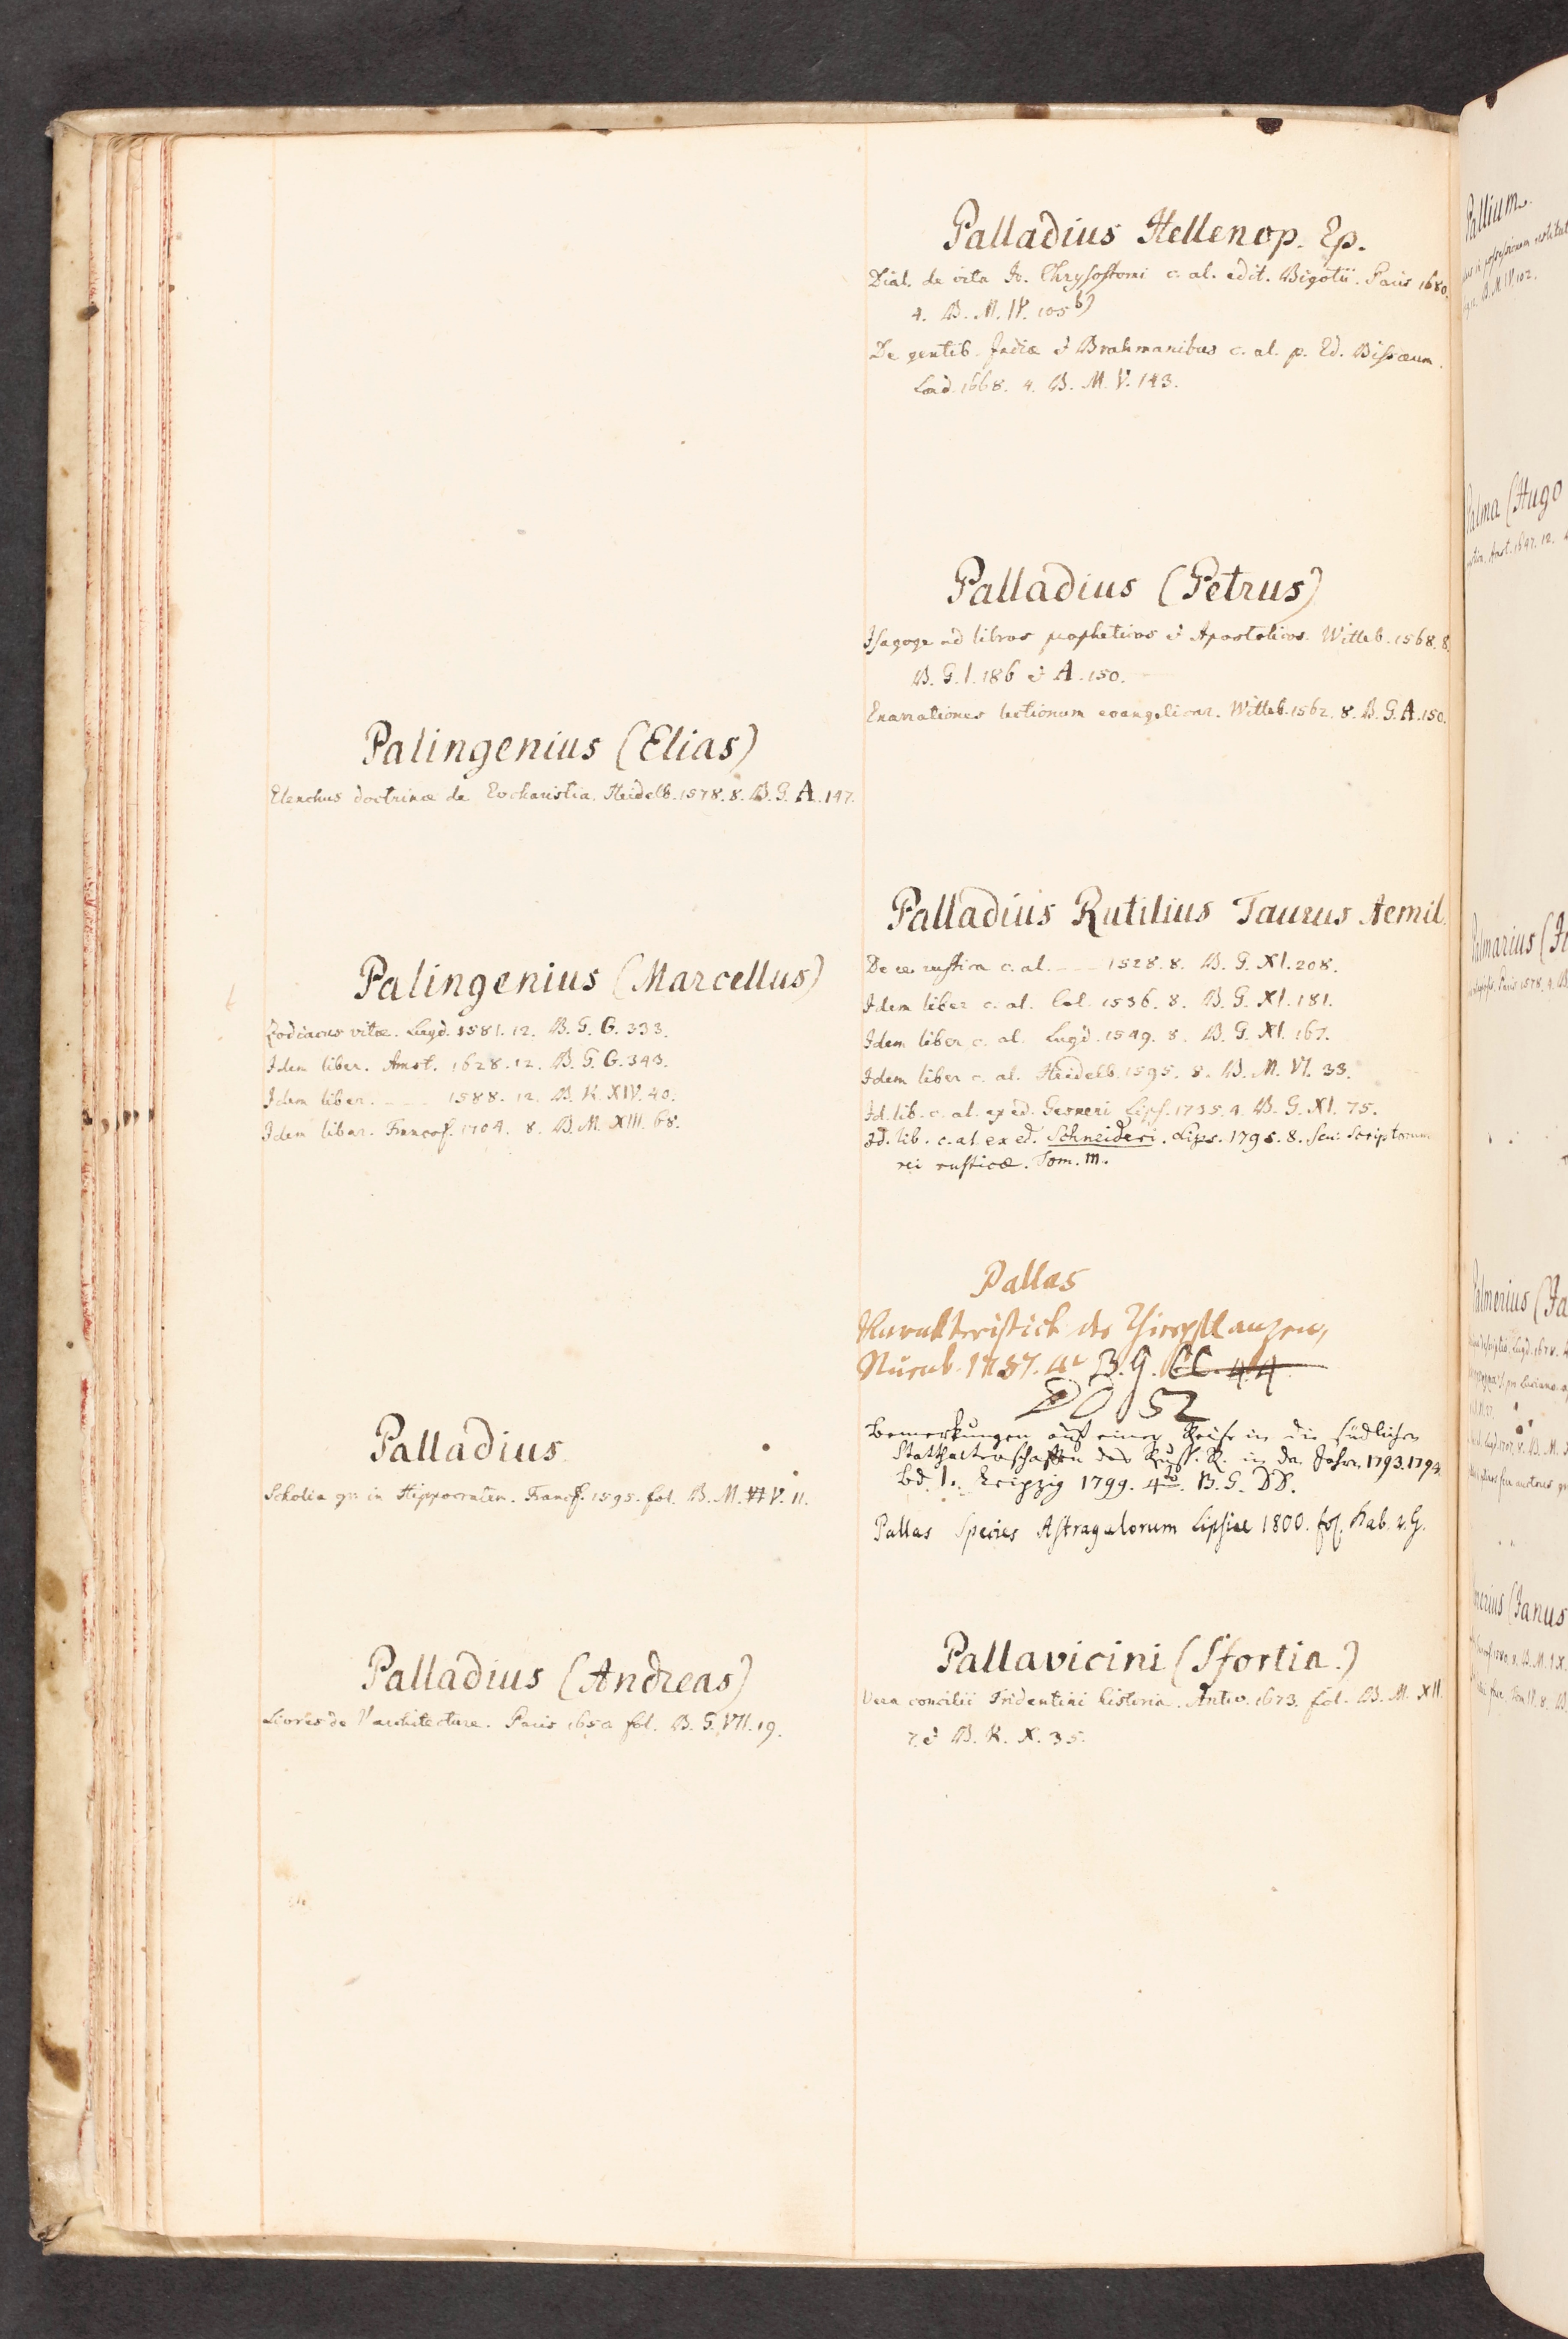 Palingenius (Elias)
Elenchus doctrinæ de Eucharistia. Heidelb. 1578. 8. B. G. A. 147.
Palingenius (Marcellus)
Zodiacus vitæ. Lugd. 1581. 12. B. G. G. 333.
Idem liber. Amst. 1628. 12. B. G. G. 343.
Idem liber. --- 1588. 12. B. K. XIV. 40.
Idem liber. Francof. 1704. 8. B. M. XIII. 68.
Palladius
Scholia gr. in Hippocratem. Francf. 1595. fol. B. M. V. 11.
Palladius (Andreas)
Livres de l'architecture. Paris 1650 fol. B. G. VII. 19.
Palladius Hellenop. Ep.
Dial. de vita Io. Chrysostomi c. al. edit. Bigotii. Paris 1680.
4. B. M. IV. 105 b)
De gentib. Indiæ & Brahmanibus c. al. p. Ed. Bissæum.
Lond. 1668. 4. B. M. V. 143.
Palladius (Petrus)
Isagoge ad libros propheticos & Apostolicos. Witteb. 1568. 8.
B. G. I. 186 & A. 150.
Enarrationes lectionum evangelicar. Witteb. 1562. 8. B. G. A. 150.
Palladius Rutilius Taurus Aemil.
De re rustica c. al. --- 1528. 8. B. G. XI. 208.
Idem liber c. al. Col. 1536. 8. B. G. XI. 181.
Idem liber c. al. Lugd. 1549. 8. B. G. XI. 167.
Idem liber c. al. Heidelb. 1595. 8. B. M. VI. 33.
Id. lib. c. al. ex ed. Gesneri Lips. 1735. 4. B. G. XI. 75.
Id. lib. c. al. ex ed. Schneideri. Lips. 1795. 8. seu: Scriptorum
rei rusticæ. Tom. III.
Pallas
Karakteristick der Thierpflanzen,
Nürnb. 1787. 4t B. G. CC. 44.
DD 52
Bemerkungen auf einer Reise in die südlichen
Statthalterschaften des Russ. R. in den Jahren 1793. 1794.
Bd. 1. Leipzig 1799. 4to. B. G. DD.
Pallas Species Astragalorum Lipsiae 1800. fol. Kab. 2. G.
Pallavicini (Sfortia.)
Vera concilii Tridentini historia. Antw. 1673. fol. B. M. XII.
7. & B. K. X. 35.
Pallium.
B. M. IV. 102.
Palma (Hugo